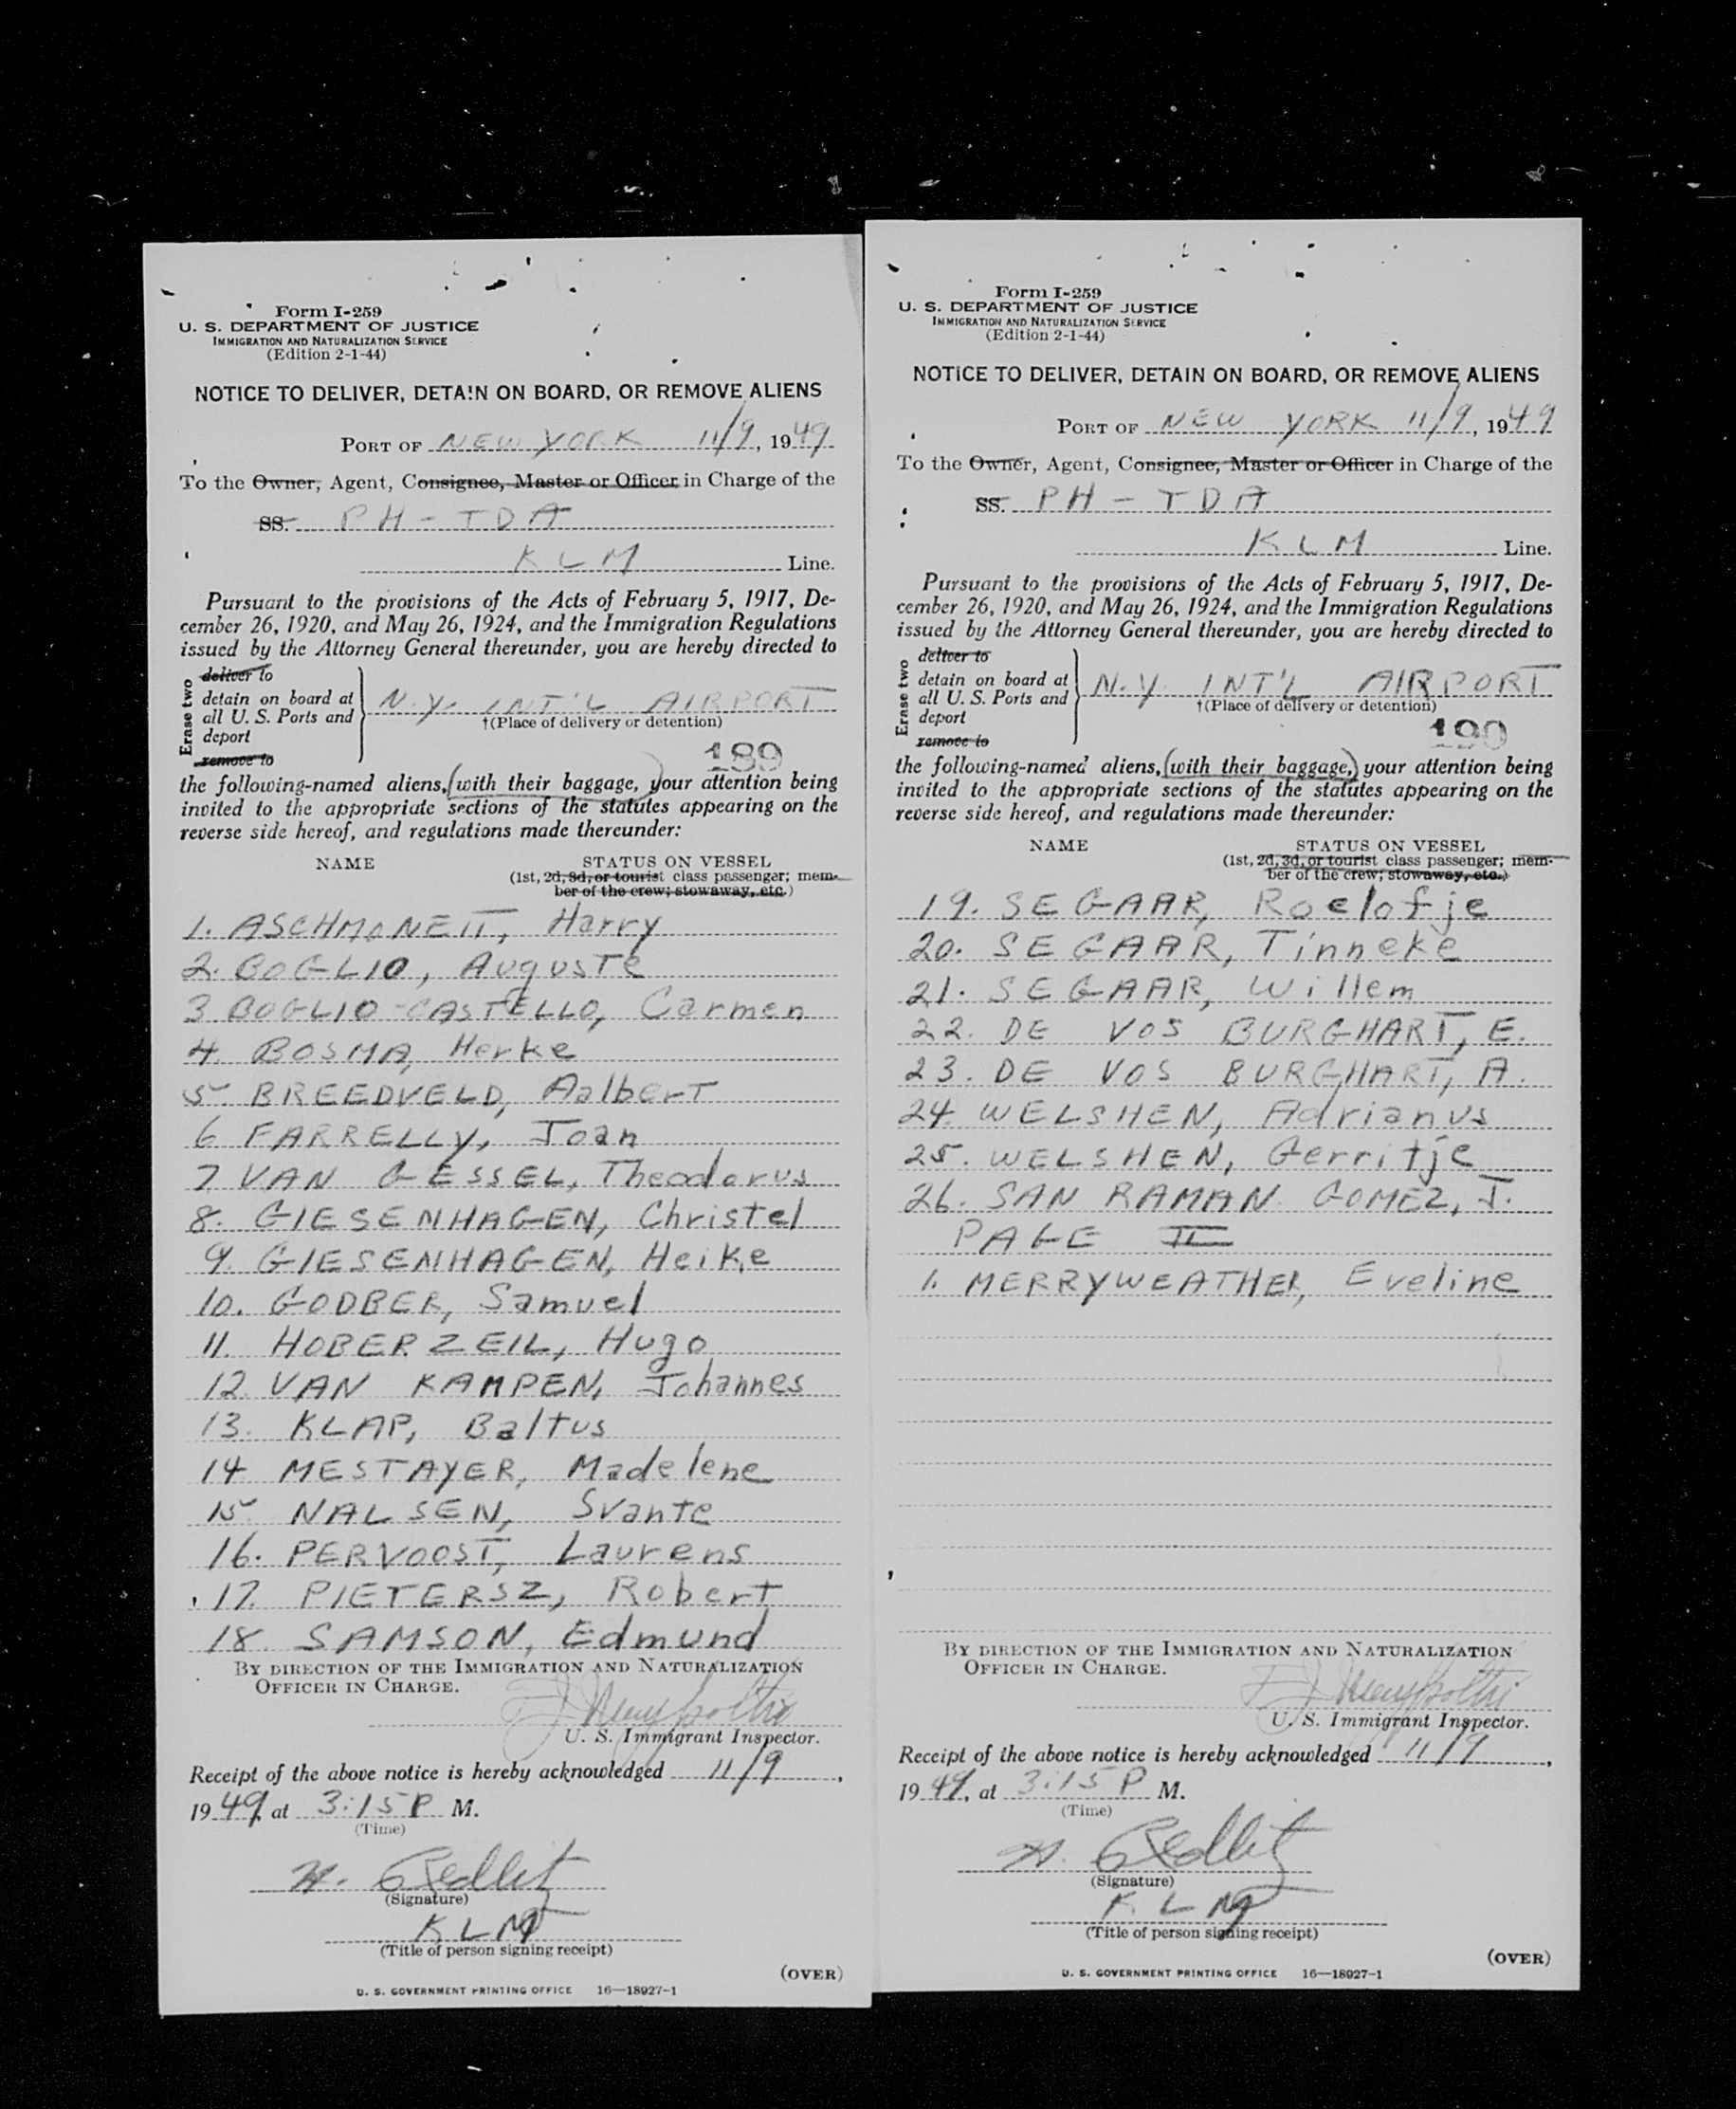 Form I-259
U. S. DEPARTMENT OF JUSTICE
IMMIGRATION AND NATURALIZATION SERVICE
(Edition 2-1-44)
NOTICE TO DELIVER, DETAIN ON BOARD, OR REMOVE ALIENS
PORT OF NEW YORK 11/9, 1949
To the Owner, Agent, Consignee, Master or Officer in Charge of the
SS. PH - TDA
KLM Line.
Pursuant to the provisions of the Acts of February 5, 1917, De-
cember 26, 1920, and May 26, 1924, and the Immigration Regulations
issued by the Attorney General thereunder, you are hereby directed to
Erase two
deliver to
detain on board at
all U. S. Ports and
deport
remove to
N.Y. INT'L AIRPORT
†(Place of delivery or detention)
189
the following-named aliens, (with their baggage,) your attention being
invited to the appropriate sections of the statutes appearing on the
reverse side hereof, and regulations made thereunder:
NAME STATUS ON VESSEL
(1st, 2d, 3d, or tourist class passenger; mem-
ber of the crew; stowaway, etc.)
1. ASCHMONEIT, Harry
2. BOGLIO, Auguste
3 BOGLIO-CASTELLO, Carmen
4. BOSMA, Herke
5 BREEDVELD, Aalbert
6 FARRELLY, Joan
7. VAN GESSEL, Theodorus
8. GIESENHAGEN, Christel
9. GIESENHAGEN, Heike
10. GODBER, Samuel
11. HOBERZEIL, Hugo
12 VAN KAMPEN, Johannes
13. KLAP, Baltus
14 MESTAYER, Madelene
15 NALSEN, Svante
16. PERVOOST, Laurens
17. PIETERSZ, Robert
18. SAMSON, Edmund
BY DIRECTION OF THE IMMIGRATION AND NATURALIZATION
OFFICER IN CHARGE.
U. S. Immigrant Inspector.
Receipt of the above notice is hereby acknowledged 11/9,
1949, at 3:15 P M.
(Time)
(Signature)
KLM
(Title of person signing receipt)
(OVER)
U. S. GOVERNMENT PRINTING OFFICE 16—18927-1
Form I-259
U. S. DEPARTMENT OF JUSTICE
IMMIGRATION AND NATURALIZATION SERVICE
(Edition 2-1-44)
NOTICE TO DELIVER, DETAIN ON BOARD, OR REMOVE ALIENS
PORT OF NEW YORK 11/9, 1949
To the Owner, Agent, Consignee, Master or Officer in Charge of the
SS. PH - TDA
KLM Line.
Pursuant to the provisions of the Acts of February 5, 1917, De-
cember 26, 1920, and May 26, 1924, and the Immigration Regulations
issued by the Attorney General thereunder, you are hereby directed to
Erase two
deliver to
detain on board at
all U. S. Ports and
deport
remove to
N.Y. INT'L AIRPORT
†(Place of delivery or detention)
190
the following-named aliens, (with their baggage,) your attention being
invited to the appropriate sections of the statutes appearing on the
reverse side hereof, and regulations made thereunder:
NAME STATUS ON VESSEL
(1st, 2d, 3d, or tourist class passenger; mem-
ber of the crew; stowaway, etc.)
19. SEGAAR, Roelofje
20. SEGAAR, Tinneke
21. SEGAAR, Willem
22. DE VOS BURGHART, E.
23. DE VOS BURGHART, A.
24. WELSHEN, Adrianus
25. WELSHEN, Gerritje
26. SAN RAMAN GOMEZ, J.
PAGE II
1. MERRYWEATHER, Eveline
BY DIRECTION OF THE IMMIGRATION AND NATURALIZATION
OFFICER IN CHARGE.
U. S. Immigrant Inspector.
Receipt of the above notice is hereby acknowledged 11/9,
1949, at 3:15 P M.
(Time)
(Signature)
KLM
(Title of person signing receipt)
(OVER)
U. S. GOVERNMENT PRINTING OFFICE 16—18927-1